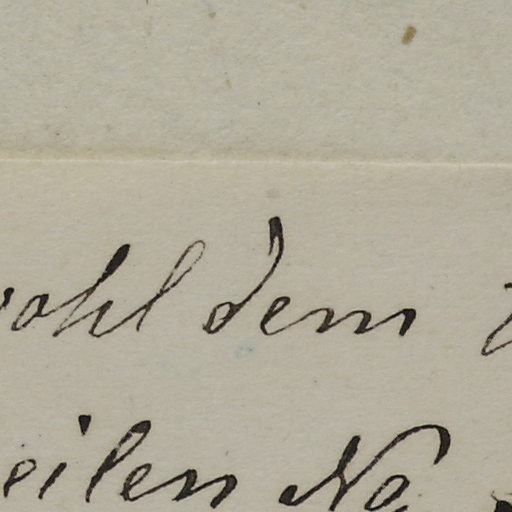 wohl dem
eilen No